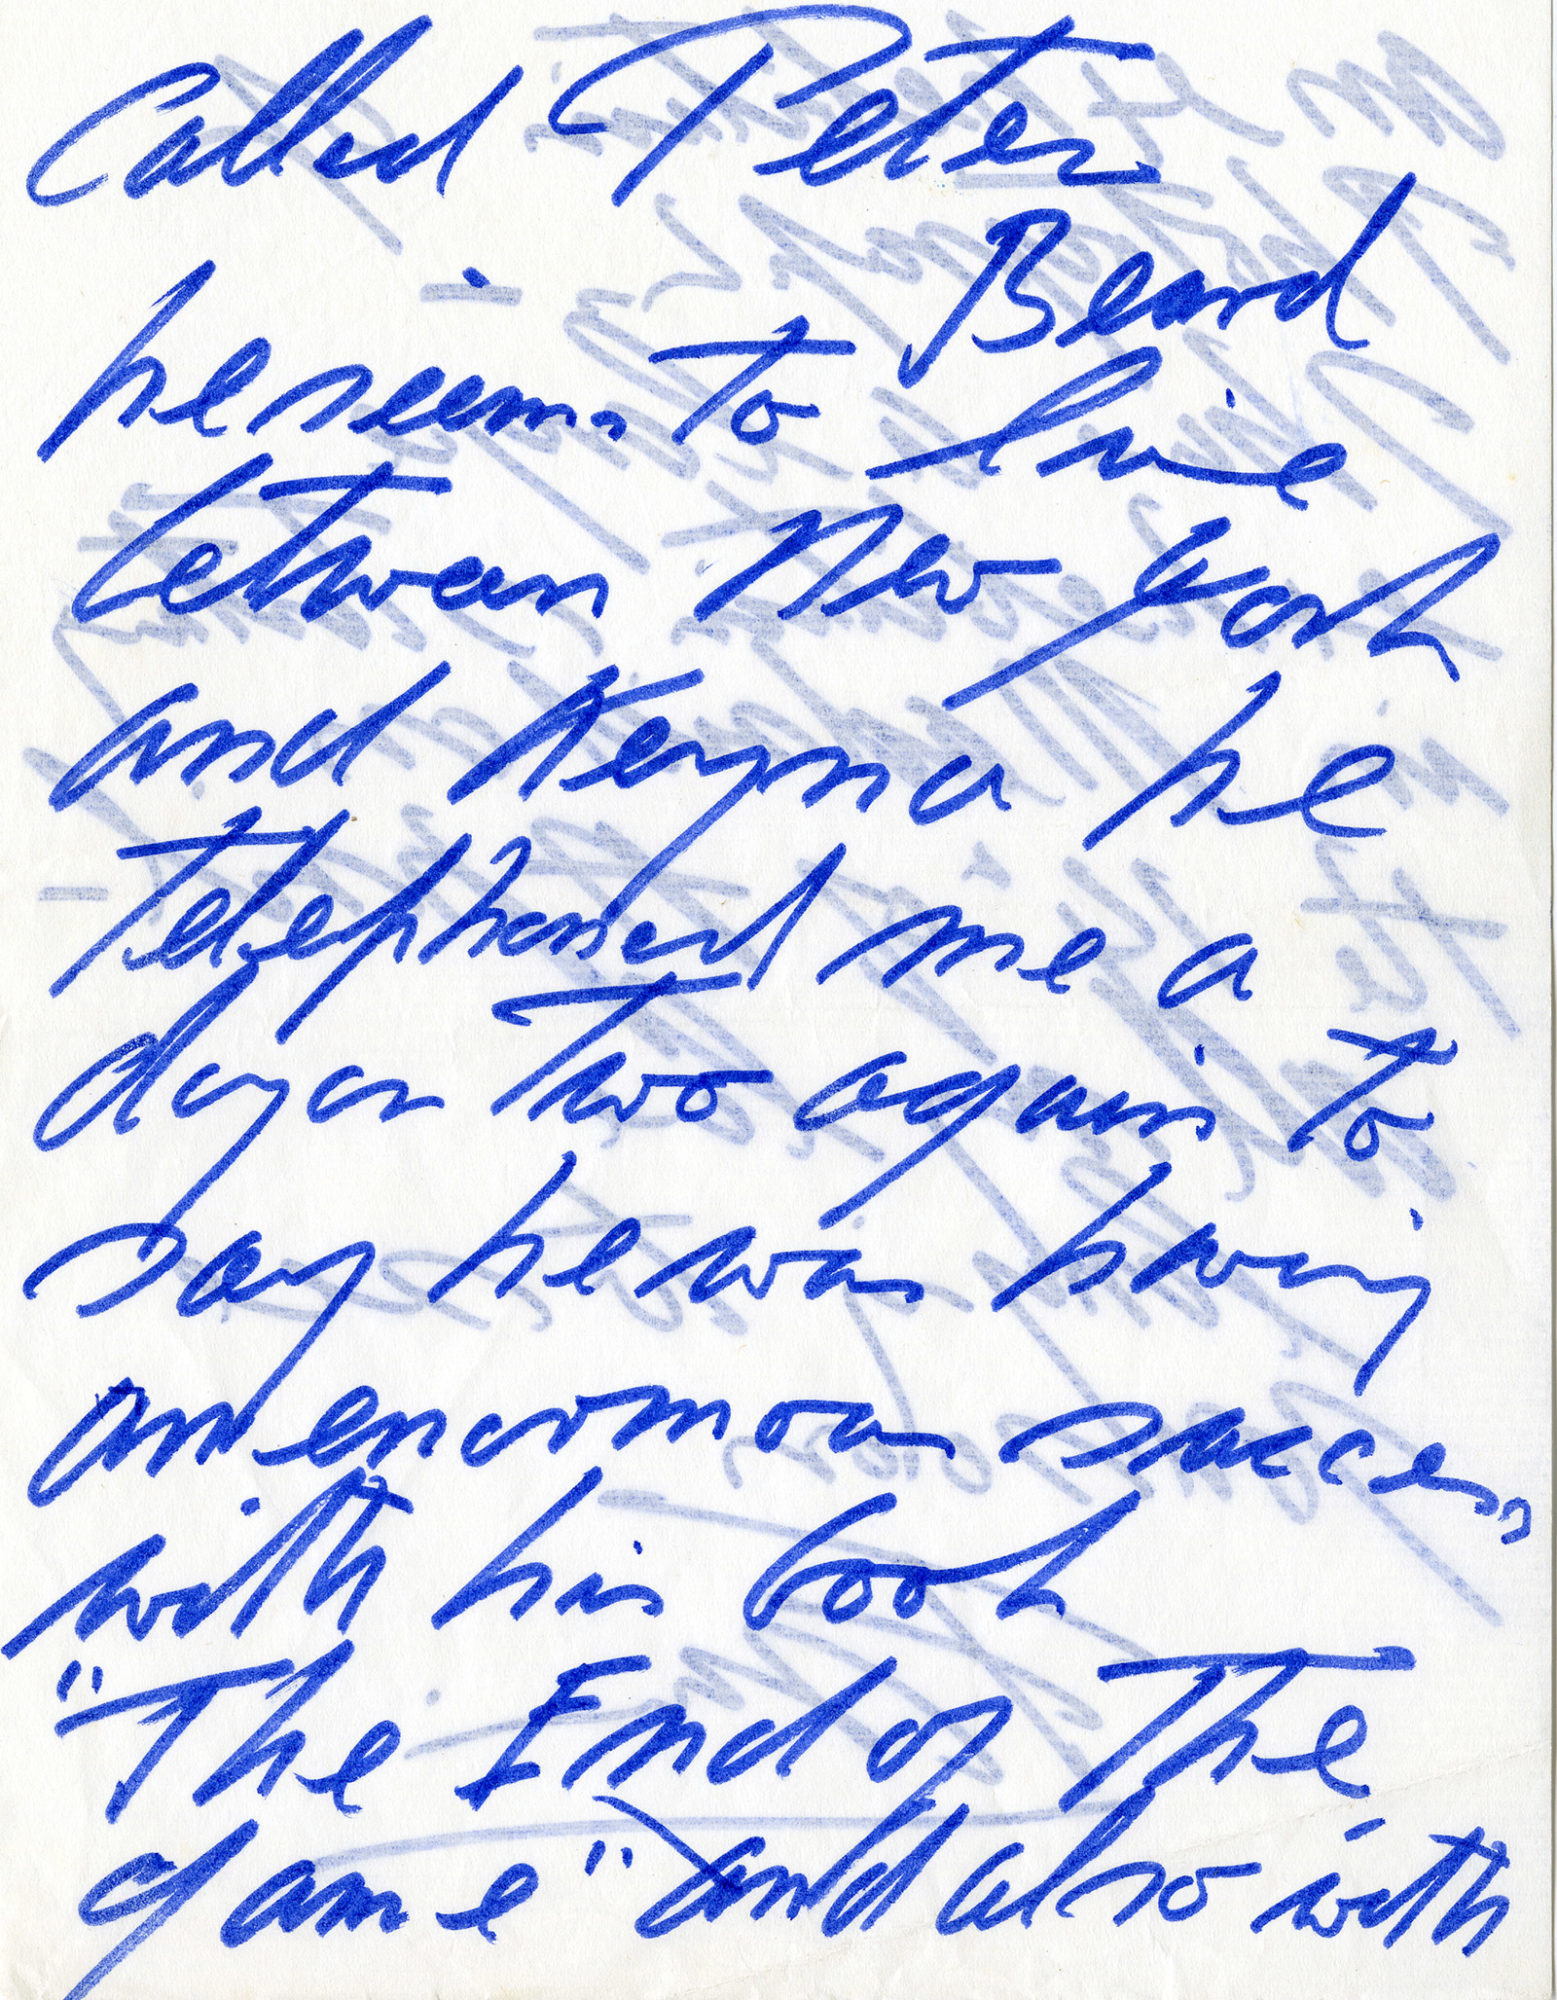 Called Peter
Beard
he seems to live
between New York
and Keyna he
telephoned me a
day or two again to
say he was having
an enormous success
with his book
"The End of The
game" and also with